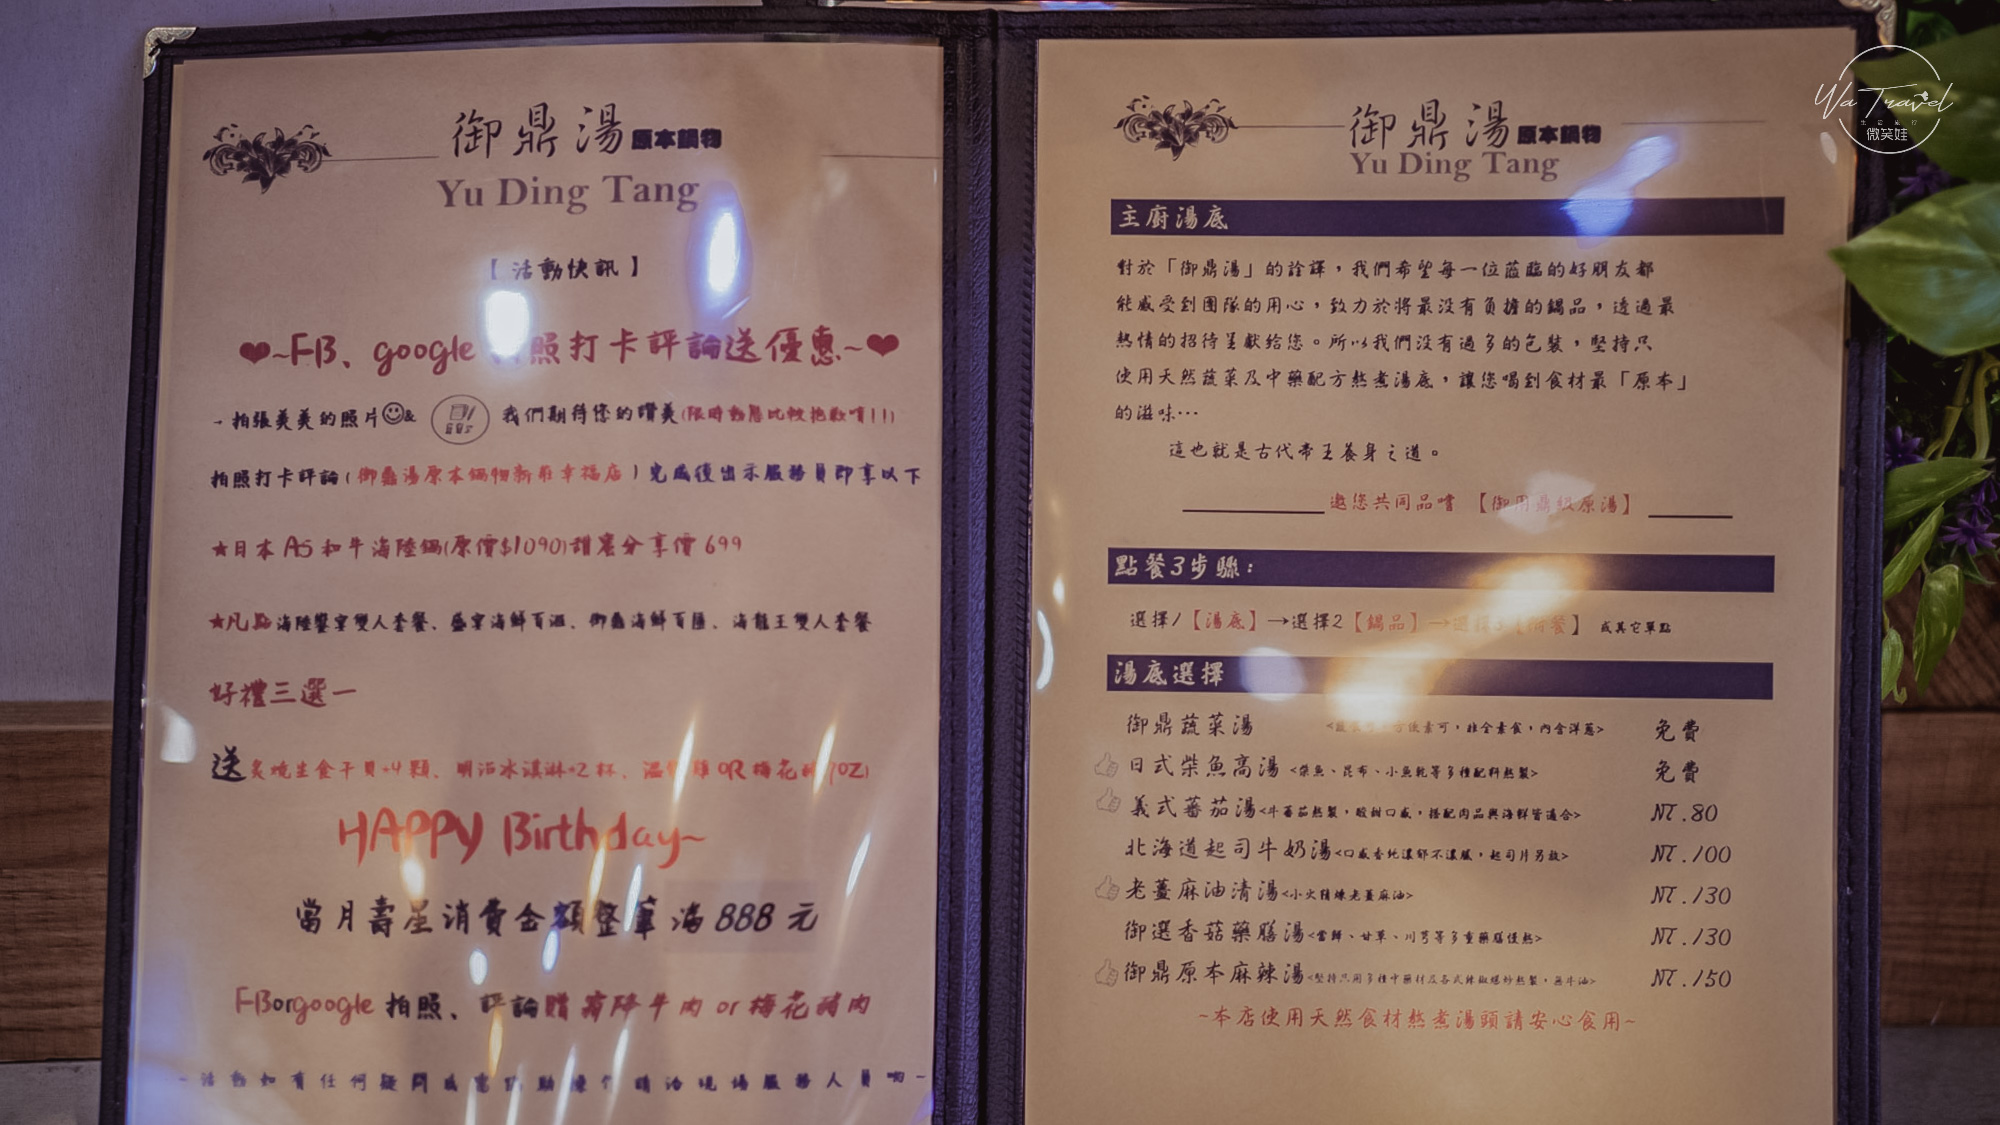 御鼎湯 原本鍋物
Yu Ding Tang
【活動快訊】
❤~FB、google 照打卡評論送優惠~❤
-拍張美美的照片☺& 我們期待您的讚美(限時動態比較抱歉唷!!)
拍照打卡評論(御鼎湯原本鍋物新莊幸福店)完成後出示服務員即享以下
★日本A5和牛海陸鍋(原價$1090)甜蜜分享價699
★凡點海陸饗宴雙人套餐、盛宴海鮮百匯、御鼎海鮮百匯、海龍王雙人套餐
好禮三選一
送炙燒生食干貝*4顆、明治冰淇淋*2杯、
HAPPY Birthday~
當月壽星消費金額整筆滿888元
FBorgoogle 拍照、評論贈 牛肉 or 梅花豬肉
~活動如有任何疑問或 請洽現場服務人員喲~
御鼎湯 原本鍋物
Yu Ding Tang
主廚湯底
對於「御鼎湯」的詮譯，我們希望每一位蒞臨的好朋友都
能感受到團隊的用心，致力於將最沒有負擔的鍋品，透過最
熱情的招待呈獻給您。所以我們沒有過多的包裝，堅持只
使用天然蔬菜及中藥配方熬煮湯底，讓您喝到食材最「原本」
的滋味…
這也就是古代帝王養身之道。
邀您共同品嚐 【御用鼎級原湯】
點餐3步驟:
選擇1【湯底】→選擇2【鍋品】→選擇3【附餐】 或其它單點
湯底選擇
御鼎蔬菜湯 素可，非全素食，內含洋蔥> 免費
日式柴魚高湯<柴魚、昆布、小魚乾等多種配料熬製> 免費
義式蕃茄湯<牛蕃茄熬製，酸甜口感，搭配肉品與海鮮皆適合> NT.80
北海道起司牛奶湯<口感香純濃郁不濃膩，起司片另放> NT.100
老薑麻油清湯<小火精煉老薑麻油> NT.130
御選香菇藥膳湯<當歸、甘草、川芎等多重藥膳慢熬> NT.130
御鼎原本麻辣湯<堅持只用多種中藥材及各式辣椒爆炒熬製，無牛油> NT.150
~本店使用天然食材熬煮湯頭請安心食用~
Wa Travel
生活旅行
微笑娃